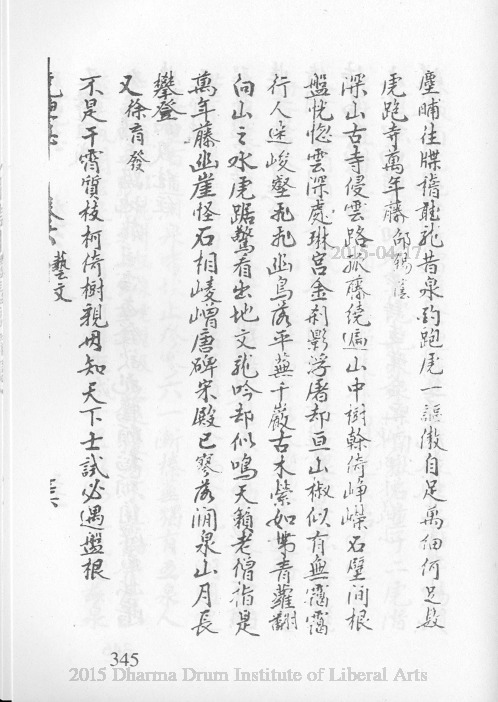 塵晡往牒稽龍昔泉鈞跑虎一謳儆自足萬細何足數
虎跑寺萬年藤 邵錫蔭
深山古寺侵雲路孤藤繞遍山中樹幹倚崢嶸石壁間根
盤恍惚雲深處琳宮金刹影浮屠却亘山椒似有無靄靄
行人迷峻壑飛飛幽鳥落平蕪千巖古木縈如帶青蘿翻
向山之水虎踞驚看出地文龍吟却似鳴天籟老僧指是
萬年藤幽崖怪石相崚嶒唐碑宋殿已寥落澗泉山月長
攀登
又 徐育發
不是干霄質枝柯倚樹親毋知天下士試必遇盤根
藝文
345
2015-04-17
2015 Dharma Drum Institute of Liberal Arts